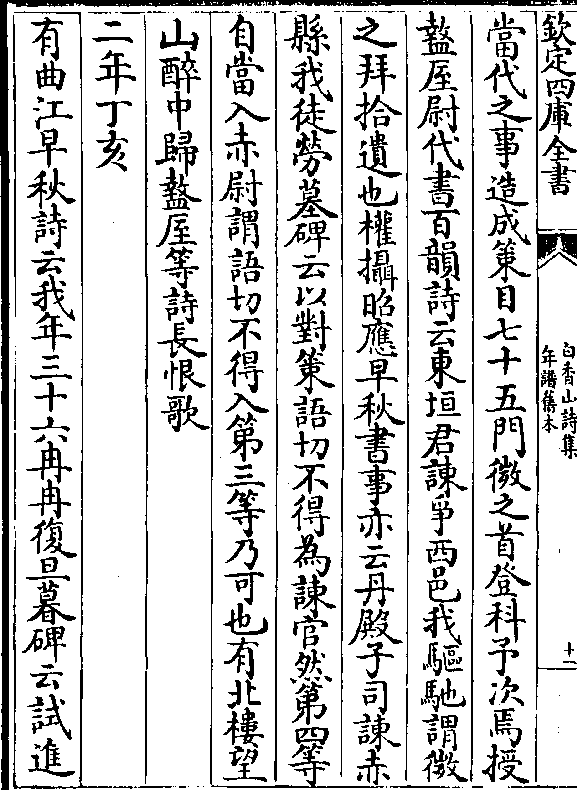 欽定四庫全書
白香山詩集
年譜舊本
十一
當代之事造成策目七十五門微之首登科予次焉授
盩厔尉代書百韻詩云東垣君諫爭西邑我驅馳謂微
之拜拾遺也權攝昭應早秋書事亦云丹殿子司諫赤
縣我徒勞墓碑云以對策語切不得為諫官然第四等
自當入赤尉謂語切不得入第三等乃可也有北樓望
山醉中歸盩厔等詩長恨歌
二年丁亥
有曲江早秋詩云我年三十六冉冉復旦暮碑云試進